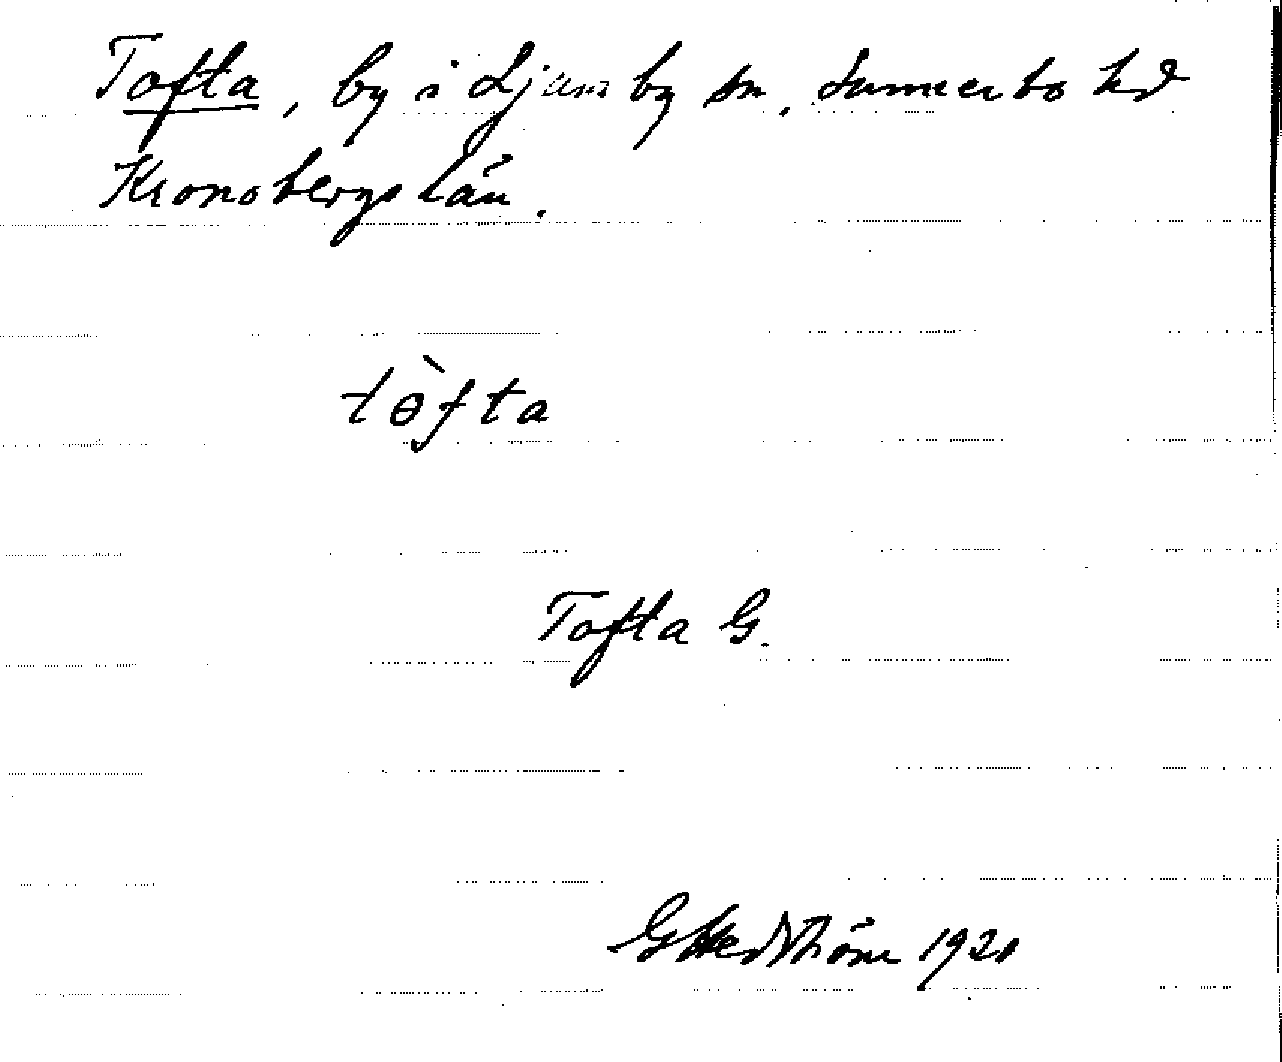 Tofta, by i Ljunby sn, Sunnerbo hd
Kronobergs län.
tɵ̀fta
Tofta G.
G Hedström 1921